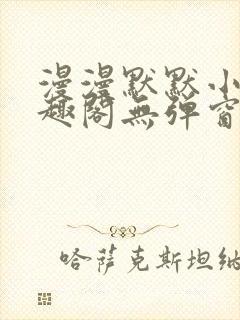 漫漫默默小
趣阁無弹窗
哈萨克斯坦纳